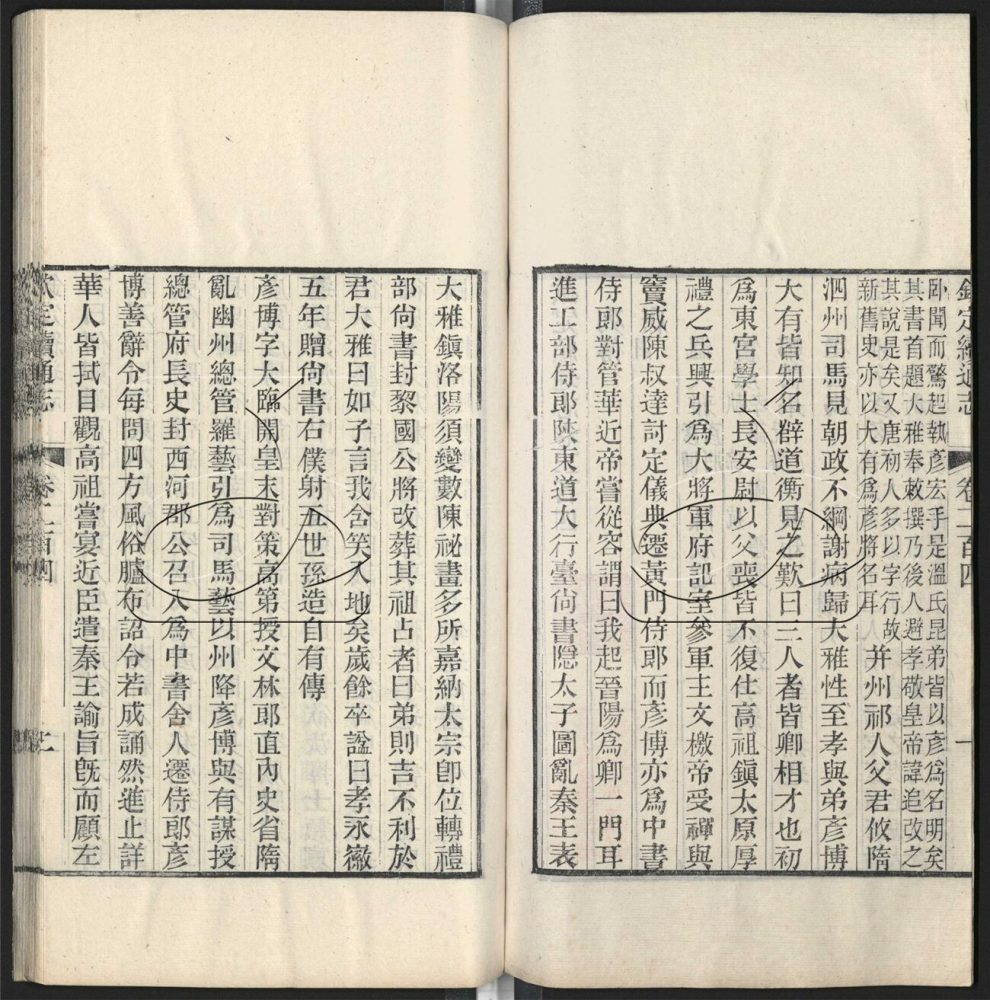 欽定續通志 卷二百四 一
卧聞而驚起執彥宏手是溫氏昆弟皆以彥爲名明矣
其書首題大雅奉敕撰乃後人避孝敬皇帝諱追改之
其說是矣又唐初人多以字行故
新舊史亦以大有爲彥將名耳
并州祁人父君攸隋
泗州司馬見朝政不綱謝病歸大雅性至孝與弟彥博
大有皆知名薛道衡見之歎曰三人者皆卿相才也初
爲東宮學士長安尉以父喪皆不復仕高祖鎮太原厚
禮之兵興引爲大將軍府記室參軍主文檄帝受禪與
竇威陳叔達討定儀典遷黃門侍郎而彥博亦爲中書
侍郎對管華近帝嘗從容謂曰我起晉陽爲卿一門耳
進工部侍郎陝東道大行臺尙書隱太子圖亂秦王表
大雅鎮洛陽須變數陳祕畫多所嘉納太宗卽位轉禮
部尙書封黎國公將改葬其祖占者曰弟則吉不利於
君大雅曰如子言我含笑入地矣歲餘卒諡曰孝永徽
五年贈尙書右僕射五世孫造自有傳
彥博字大臨開皇末對策高第授文林郎直內史省隋
亂幽州總管羅藝引爲司馬藝以州降彥博與有謀授
總管府長史封西河郡公召入爲中書舍人遷侍郎彥
博善辭令每問四方風俗臚布詔令若成誦然進止詳
華人皆拭目觀高祖嘗宴近臣遣秦王諭旨旣而顧左
欽定續通志 卷二百四